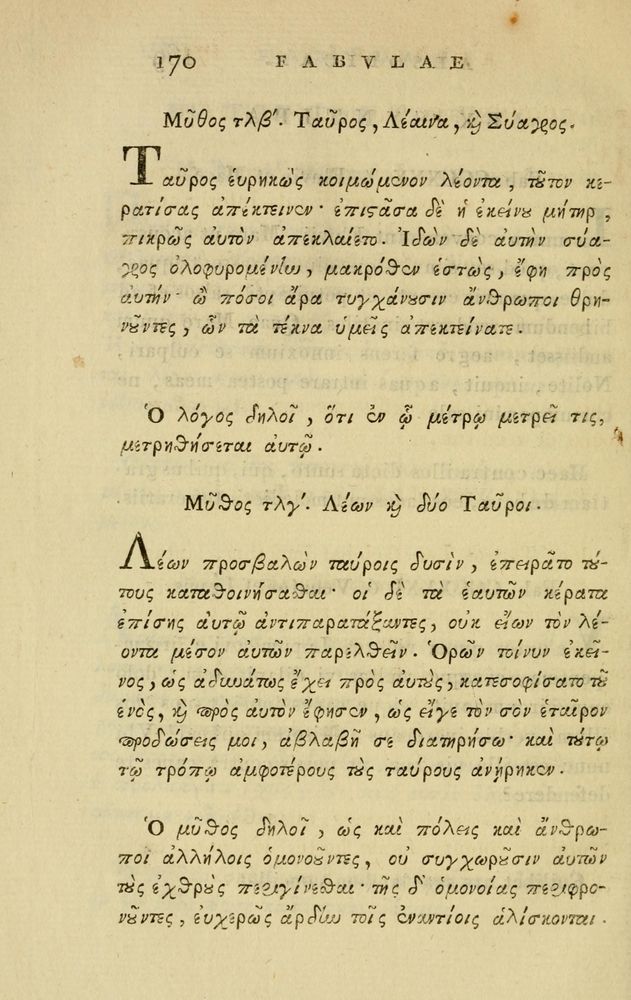 170 FABVLAE
Μῦθος τλβ΄. Ταῦρος, Λέαινα, ϗ Σύαγρος.
Ταῦρος ἑυρηκὼς κοιμώμενον λέοντα, τȣ͂τον κε-
ρατίσας ἀπέκτεινεν· ἐπιϛᾶσα δὲ ἡ ἐκείνου μήτηρ,
πικρῶς ἀυτὸν ἀπεκλαίετο. Ἰδὼν δὲ ἀυτὴν σύα-
γρος ὀλοφυρομένην, μακρόθεν ἑστὼς, ἔφη πρὸς
ἀυτήν· ὢ πόσοι ἄρα τυγχάνȣσιν ἄνθρωποι θρη-
νȣ͂ντες, ὧν τὰ τέκνα ὑμεῖς ἀπεκτείνατε.
Ὁ λόγος δηλοῖ, ὅτι ἐν ᾧ μέτρῳ μετρεῖ τις,
μετρηθήσεται ἀυτῷ.
Μῦθος τλγ΄. Λέων ϗ δύο Ταῦροι.
Λέων προσβαλὼν ταύροις δυσὶν, ἐπειρᾶτο τȣ́-
τους καταθοινήσασθαι· οἱ δὲ τὰ ἑαυτῶν κέρατα
ἐπίσης ἀυτῷ ἀντιπαρατάξαντες, ȣκ εἴων τὸν λέ-
οντα μέσον ἀυτῶν παρελθεῖν. Ὁρῶν τοίνυν ἐκεῖ-
νος, ὡς ἀδυνάτως ἔχει πρὸς ἀυτȣ̀ς, κατεσοφίσατο τȣ͂
ἑνὸς, ϗ πρὸς ἀυτὸν ἔφησεν, ὡς εἴγε τὸν σὸν ἑταῖρον
προδώσεις μοι, ἀβλαβῆ σε διατηρήσω· καὶ τȣ́τῳ
τῷ τρόπῳ ἀμφοτέρους τȣ̀ς ταύρους ἀνῄρηκεν.
Ὁ μῦθος δηλοῖ, ὡς καὶ πόλεις καὶ ἄνθρω-
ποι ἀλλήλοις ὁμονοοῦντες, οὐ συγχωρȣ͂σιν ἀυτῶν
τȣ̀ς ἐχθρȣ̀ς περιγίνεσθαι· τῆς δ᾽ ὁμονοίας περιφρο-
νȣ͂ντες, ἐυχερῶς ἄρδην τοῖς ἐναντίοις ἁλίσκονται.